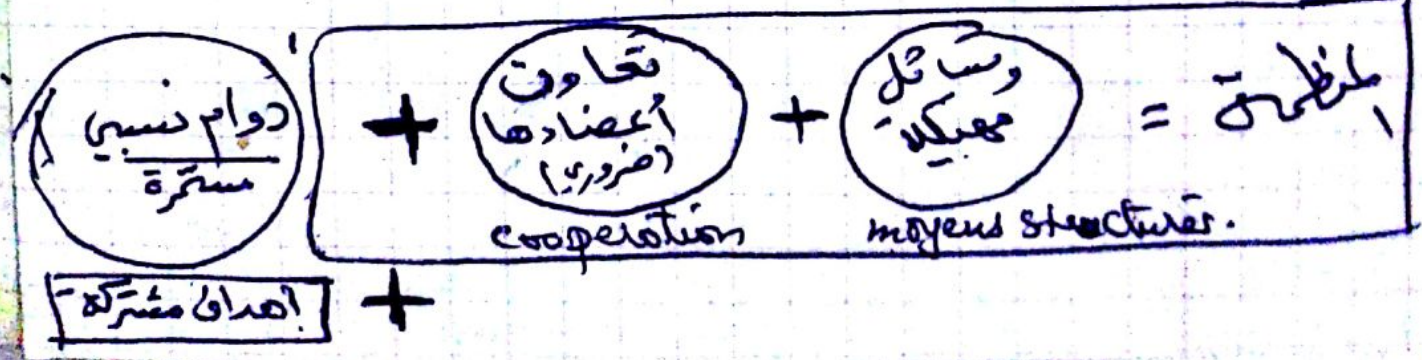 المنظمة = وسائل مهيكلة + تعاون أعضاءها (ضروري) + دوام نسبي مستمرة
moyens structurés. cooperation
+ أهداف مشتركة